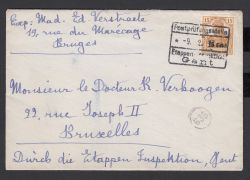 Exp: Mad. Ed Verstraete
19, rue du Marécage
Bruges
15 15
Postprüfungsstelle
-9.
Etappen-
Gent
Monsieur le Docteur R. Verhoogen
99, rue Joseph II
Bruxelles
Durch die Etappen Inspektion, Gent